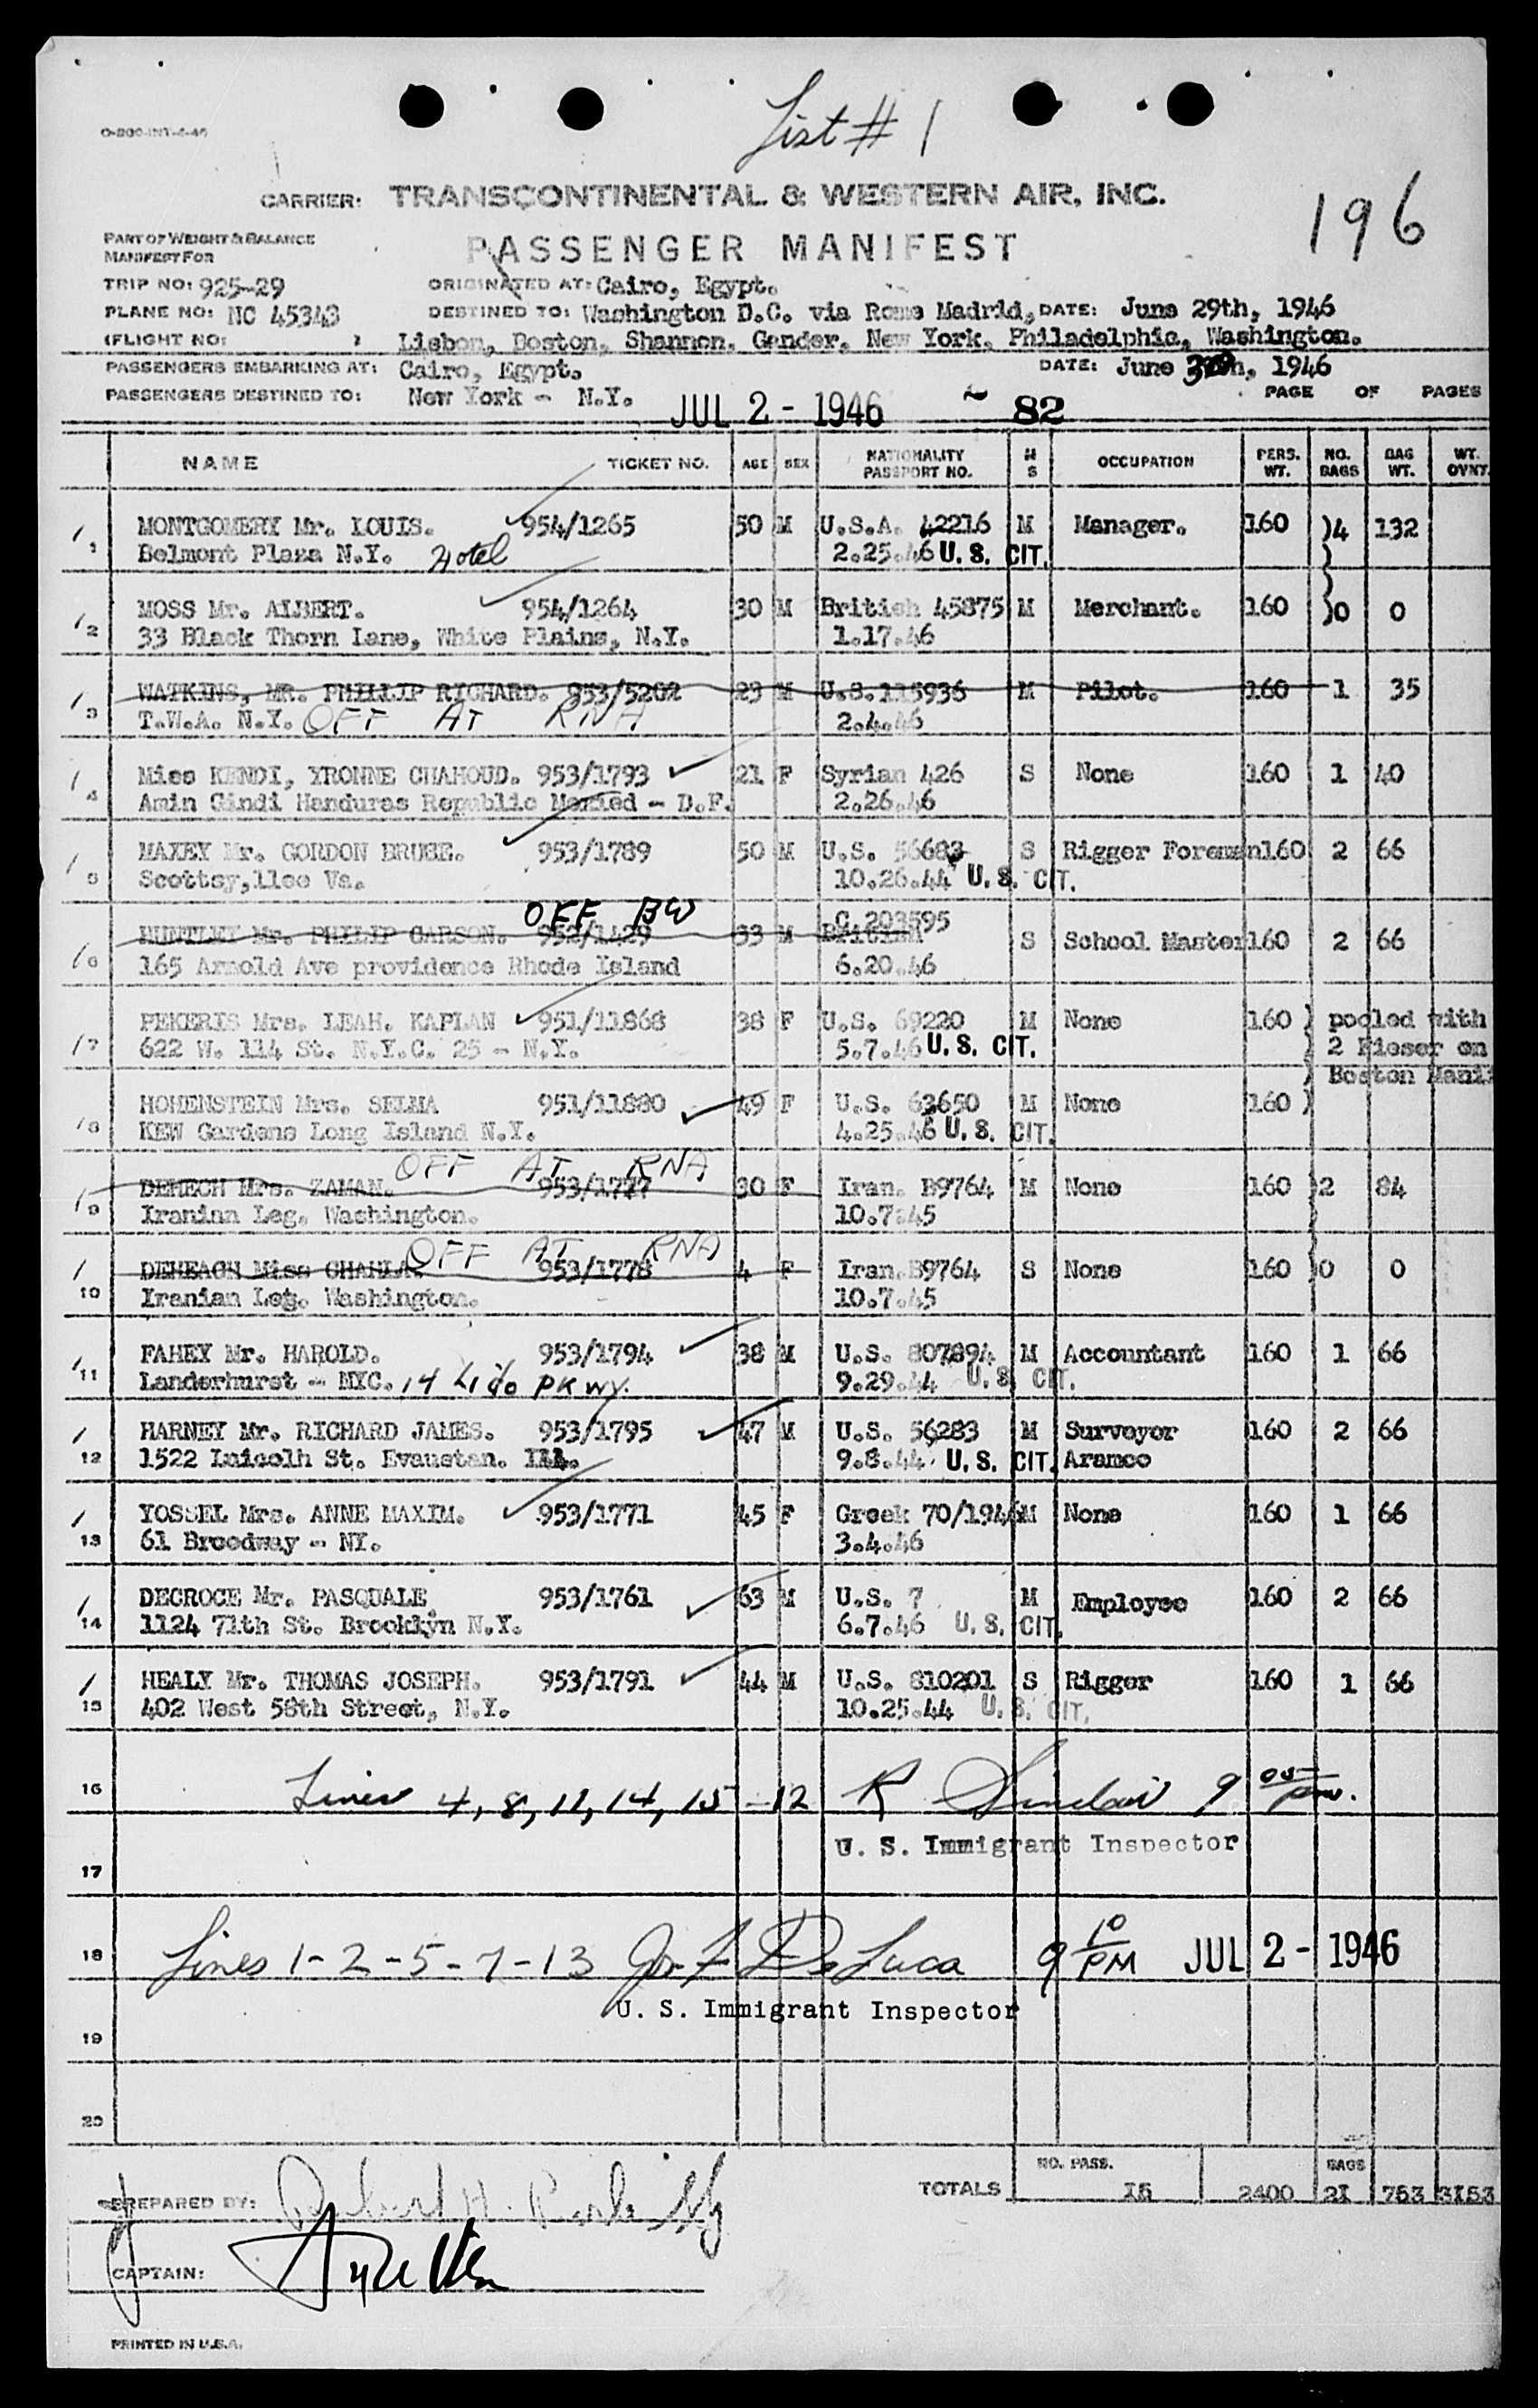 List # 1
O-800-INT-4-46
CARRIER: TRANSCONTINENTAL & WESTERN AIR, INC.
196
PART OF WEIGHT & BALANCE
MANIFEST FOR
PASSENGER MANIFEST
TRIP NO: 925-29 ORIGINATED AT: Cairo, Egypt.
PLANE NO: NC 45343 DESTINED TO: Washington D.C. via Rome Madrid, DATE: June 29th, 1946
(FLIGHT NO: ) Lisbon, Boston, Shannon, Gander, New York, Philadelphia, Washington.
PASSENGERS EMBARKING AT: Cairo, Egypt. DATE: June 30th, 1946
PASSENGERS DESTINED TO: New York - N.Y. JUL 2 - 1946 ~ 82 PAGE OF PAGES
NAME TICKET NO. AGE SEX NATIONALITY PASSPORT NO. M S OCCUPATION PERS. WT. NO. BAGS BAG WT. WT. OVNT.
1 MONTGOMERY Mr. LOUIS. 954/1265 50 M U.S.A. 42216 M Manager. 160 )4 132
Belmont Plaza N.Y. Hotel 2.25.46 U. S. CIT.
2 MOSS Mr. ALBERT. 954/1264 30 M British 45875 M Merchant. 160 )0 0
33 Black Thorn Lane, White Plains, N.Y. 1.17.46
3 WATKINS, MR. PHILLIP RICHARD. 953/5202 23 M U.S.115936 M Pilot. 160 1 35
T.W.A. N.Y. OFF AT RNA 2.4.46
4 Miss KENDI, YRONNE CHAHOUD. 953/1793 21 F Syrian 426 S None 160 1 40
Amin Gindi Handuras Republic Mexied - D.F. 2.26.46
5 MAXEY Mr. GORDON BRUSE. 953/1789 50 M U.S. 56683 S Rigger Foreman 160 2 66
Scottsy,llee Va. 10.26.44 U. S. CIT.
OFF BW
6 HUNTLEY Mr. PHILIP CARSON. 952/1429 33 M British C.203595 S School Master 160 2 66
165 Arnold Ave providence Rhode Island 6.20.46
7 PEKERIS Mrs. LEAH. KAPLAN 951/11868 38 F U.S. 69220 M None 160 ) pooled with
622 W. 114 St. N.Y.C. 25 - N.Y. 5.7.46 U. S. CIT. 2 Fieser on
Boston Mani
8 HOHENSTEIN Mrs. SELMA 951/11880 49 F U.S. 63650 M None 160 )
KEW Gardens Long Island N.Y. 4.25.46 U. S. CIT.
OFF AT RNA
9 DEHECH Mrs. ZAMAN. 953/1777 30 F Iran. B9764 M None 160 )2 84
Iranian Leg. Washington. 10.7.45
OFF AT RNA
10 DEHEACH Miss CHAHLA. 953/1778 4 F Iran. B9764 S None 160 )0 0
Iranian Leg. Washington. 10.7.45
11 FAHEY Mr. HAROLD. 953/1794 38 M U.S. 807894 M Accountant 160 1 66
Landerhurst - NYC. 14 Lido PKWY. 9.29.44 U. S. CIT.
12 HARNEY Mr. RICHARD JAMES. 953/1795 47 M U.S. 56283 M Surveyor 160 2 66
1522 Lnicolh St. Evaustan. Ill. 9.8.44 U. S. CIT. Aramco
13 YOSSEL Mrs. ANNE MAXIM. 953/1771 45 F Greek 70/1946 M None 160 1 66
61 Broodway - NY. 3.4.46
14 DECROCE Mr. PASQUALE. 953/1761 63 M U.S. 7 M Employee 160 2 66
1124 71th St. Brooklyn N.Y. 6.7.46 U. S. CIT.
15 HEALY Mr. THOMAS JOSEPH. 953/1791 44 M U.S. 810201 S Rigger 160 1 66
402 West 58th Street, N.Y. 10.25.44 U. S. CIT.
16 Lines 4, 8, 11, 14, 15 - 12 R Sinclair 9 05 pm.
U. S. Immigrant Inspector
17
18 Lines 1-2-5-7-13 Jos F DeLuca 9 10 PM JUL 2 - 1946
U. S. Immigrant Inspector
19
20
TOTALS NO. PASS. 15 2400 BAGS 21 753 3153
PREPARED BY: Robert H.
CAPTAIN:
PRINTED IN U.S.A.